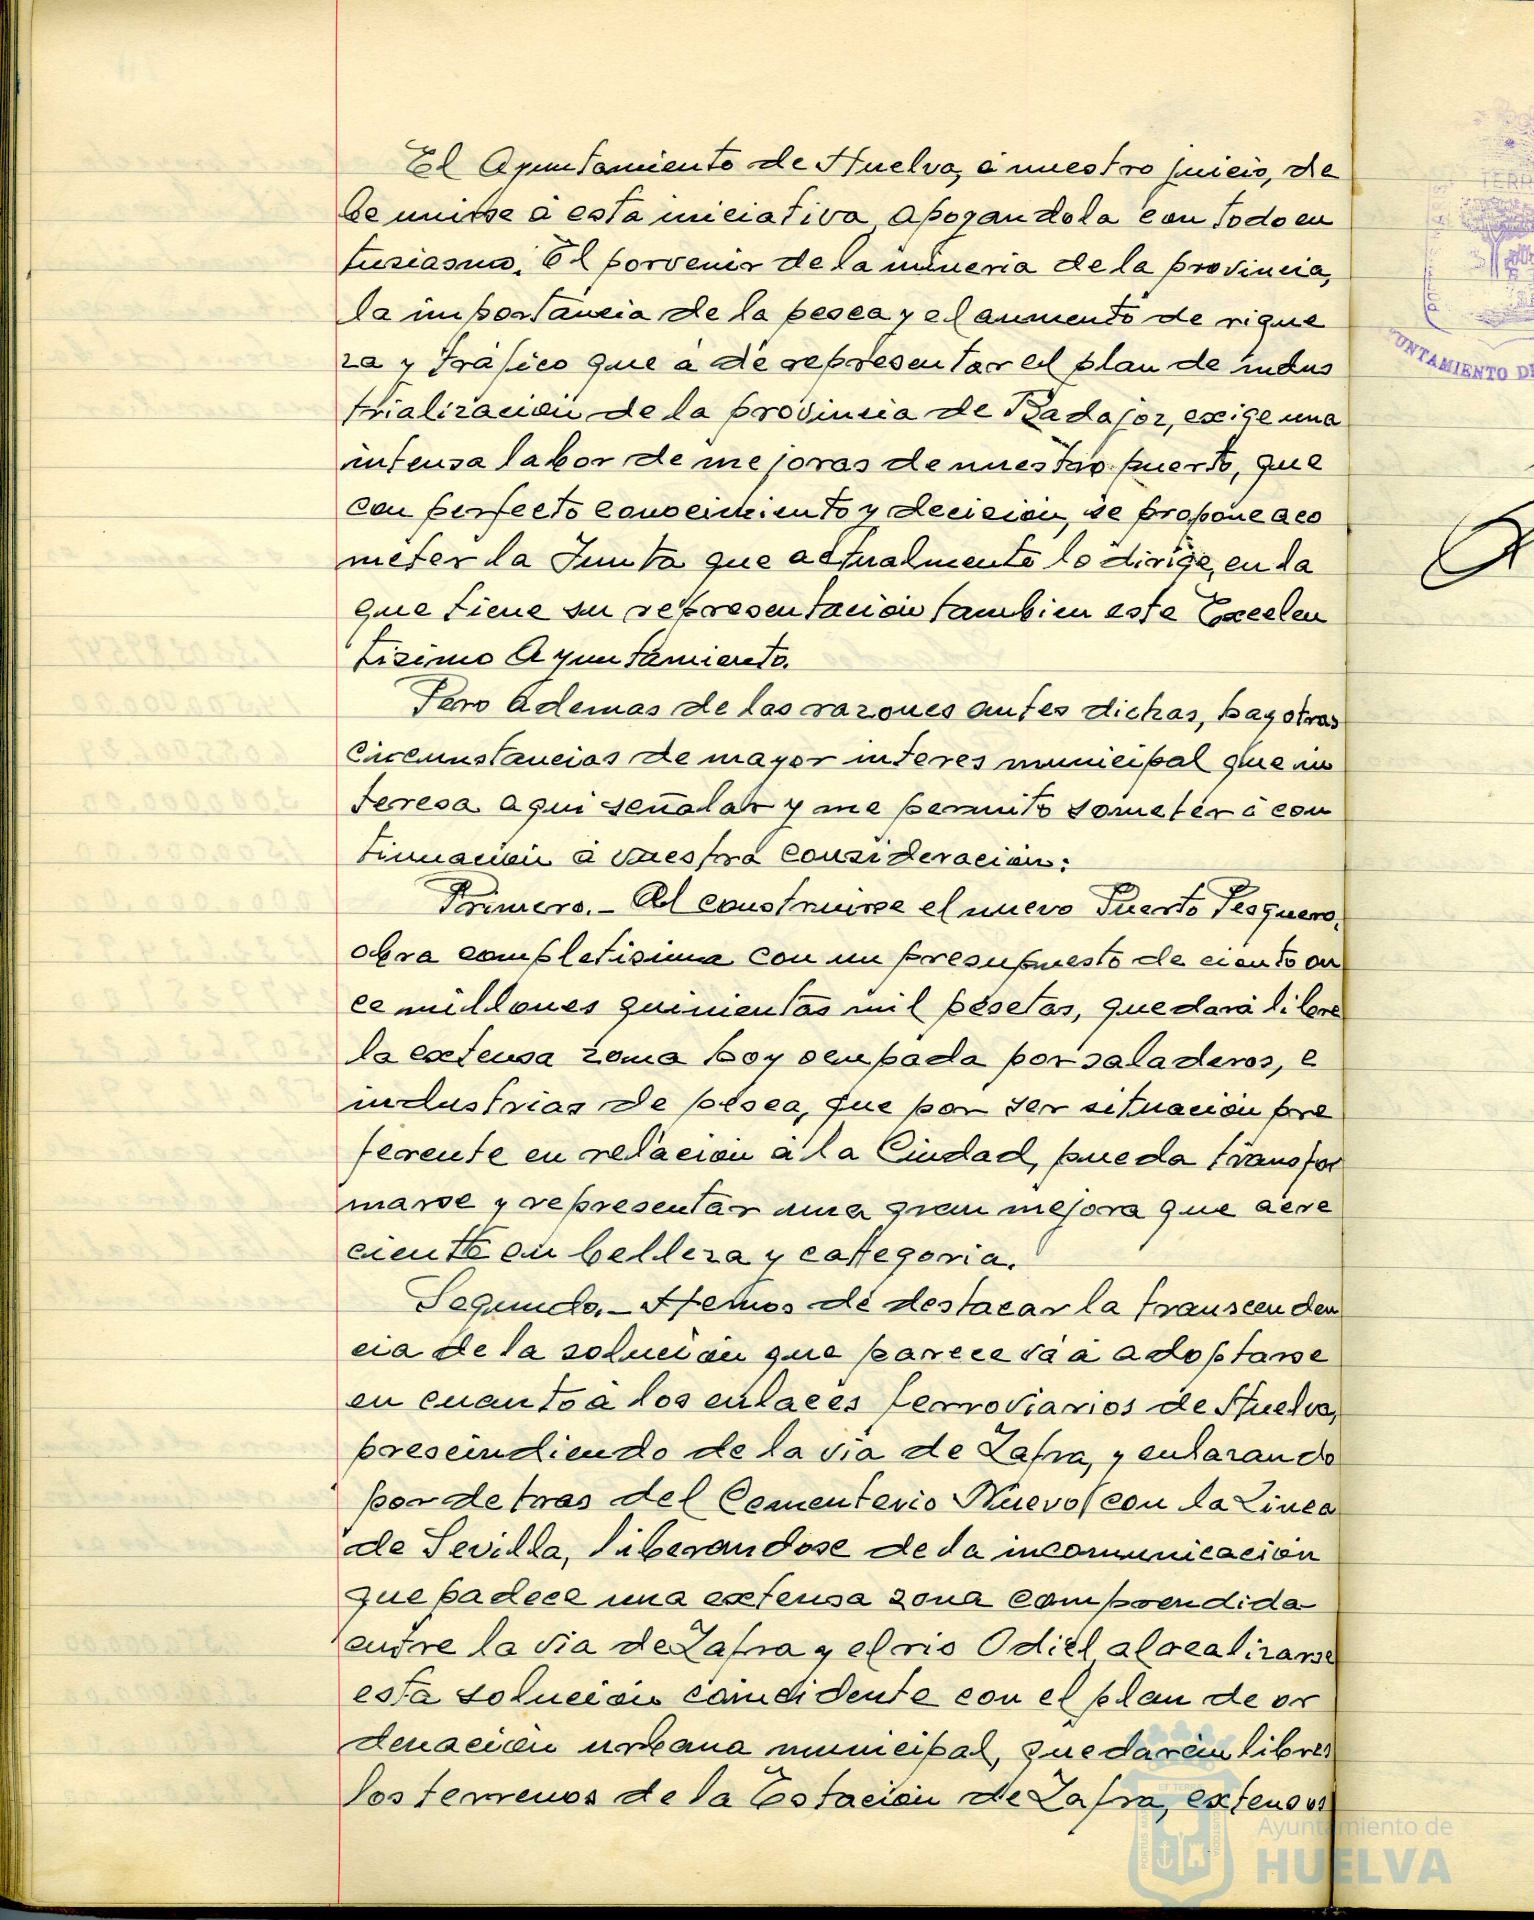 El Ayuntamiento de Huelva, á nuestro juicio, de
be unirse á esta iniciativa, apoyandola con todo en
tusiasmo. El porvenir de la mineria de la provincia,
la importancia de la pesca y el aumento de rique
za y tráfico que á de representar el plan de indus
trialización de la provincia de Badajoz, exige una
intensa labor de mejoras de nuestro puerto, que
con perfecto conocimiento y decisión, se propone aco
meter la Junta que actualmente lo dirige, en la
que tiene su representación tambien este Excelen
tisimo Ayuntamiento.
Pero ademas de las razones antes dichas, hay otras
circunstancias de mayor interes municipal que in
teresa aqui señalar y me permito someter á con
tinuación á vuestra consideración:
Primero.- Al construirse el nuevo Puerto Pesquero,
obra completisima con un presupuesto de ciento on
ce millones quinientas mil pesetas, quedará libre
la extensa zona hoy ocupada por saladeros, e
industrias de pesca, que por ser situación pre
ferente en relación á la Ciudad, pueda transfor
marse y representar una gran mejora que acre
ciente en belleza y categoria.
Segundo.- Hemos de destacar la transcenden
cia de la solución que parece vá á adoptarse
en cuanto á los enlaces ferroviarios de Huelva,
prescindiendo de la via de Zafra, y enlazando
por detras del Cementerio Nuevo con la Linea
de Sevilla, liberandose de la incomunicación
que padece una extensa zona comprendida
entre la via de Zafra y el rio Odiel, al realizarse
esta solución coincidente con el plan de or
denación urbana municipal, quedarán libres
los terrenos de la Estación de Zafra, extensos
UNTAMIENTO DE
Ayuntamiento de
HUELVA